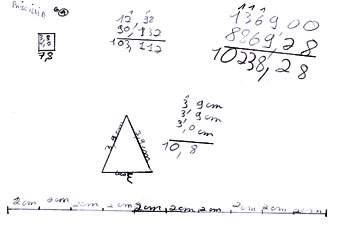 12, 98
90, 132
103, 112
1369 00
8869, 28
10238, 28
3,8
4,0
7,8
3,9cm
3,9cm
3,0cm
10,8
3,9cm
3,9cm
3cm
2cm 2cm 2cm 2cm 2cm 2cm 2cm 2cm 2cm 2cm